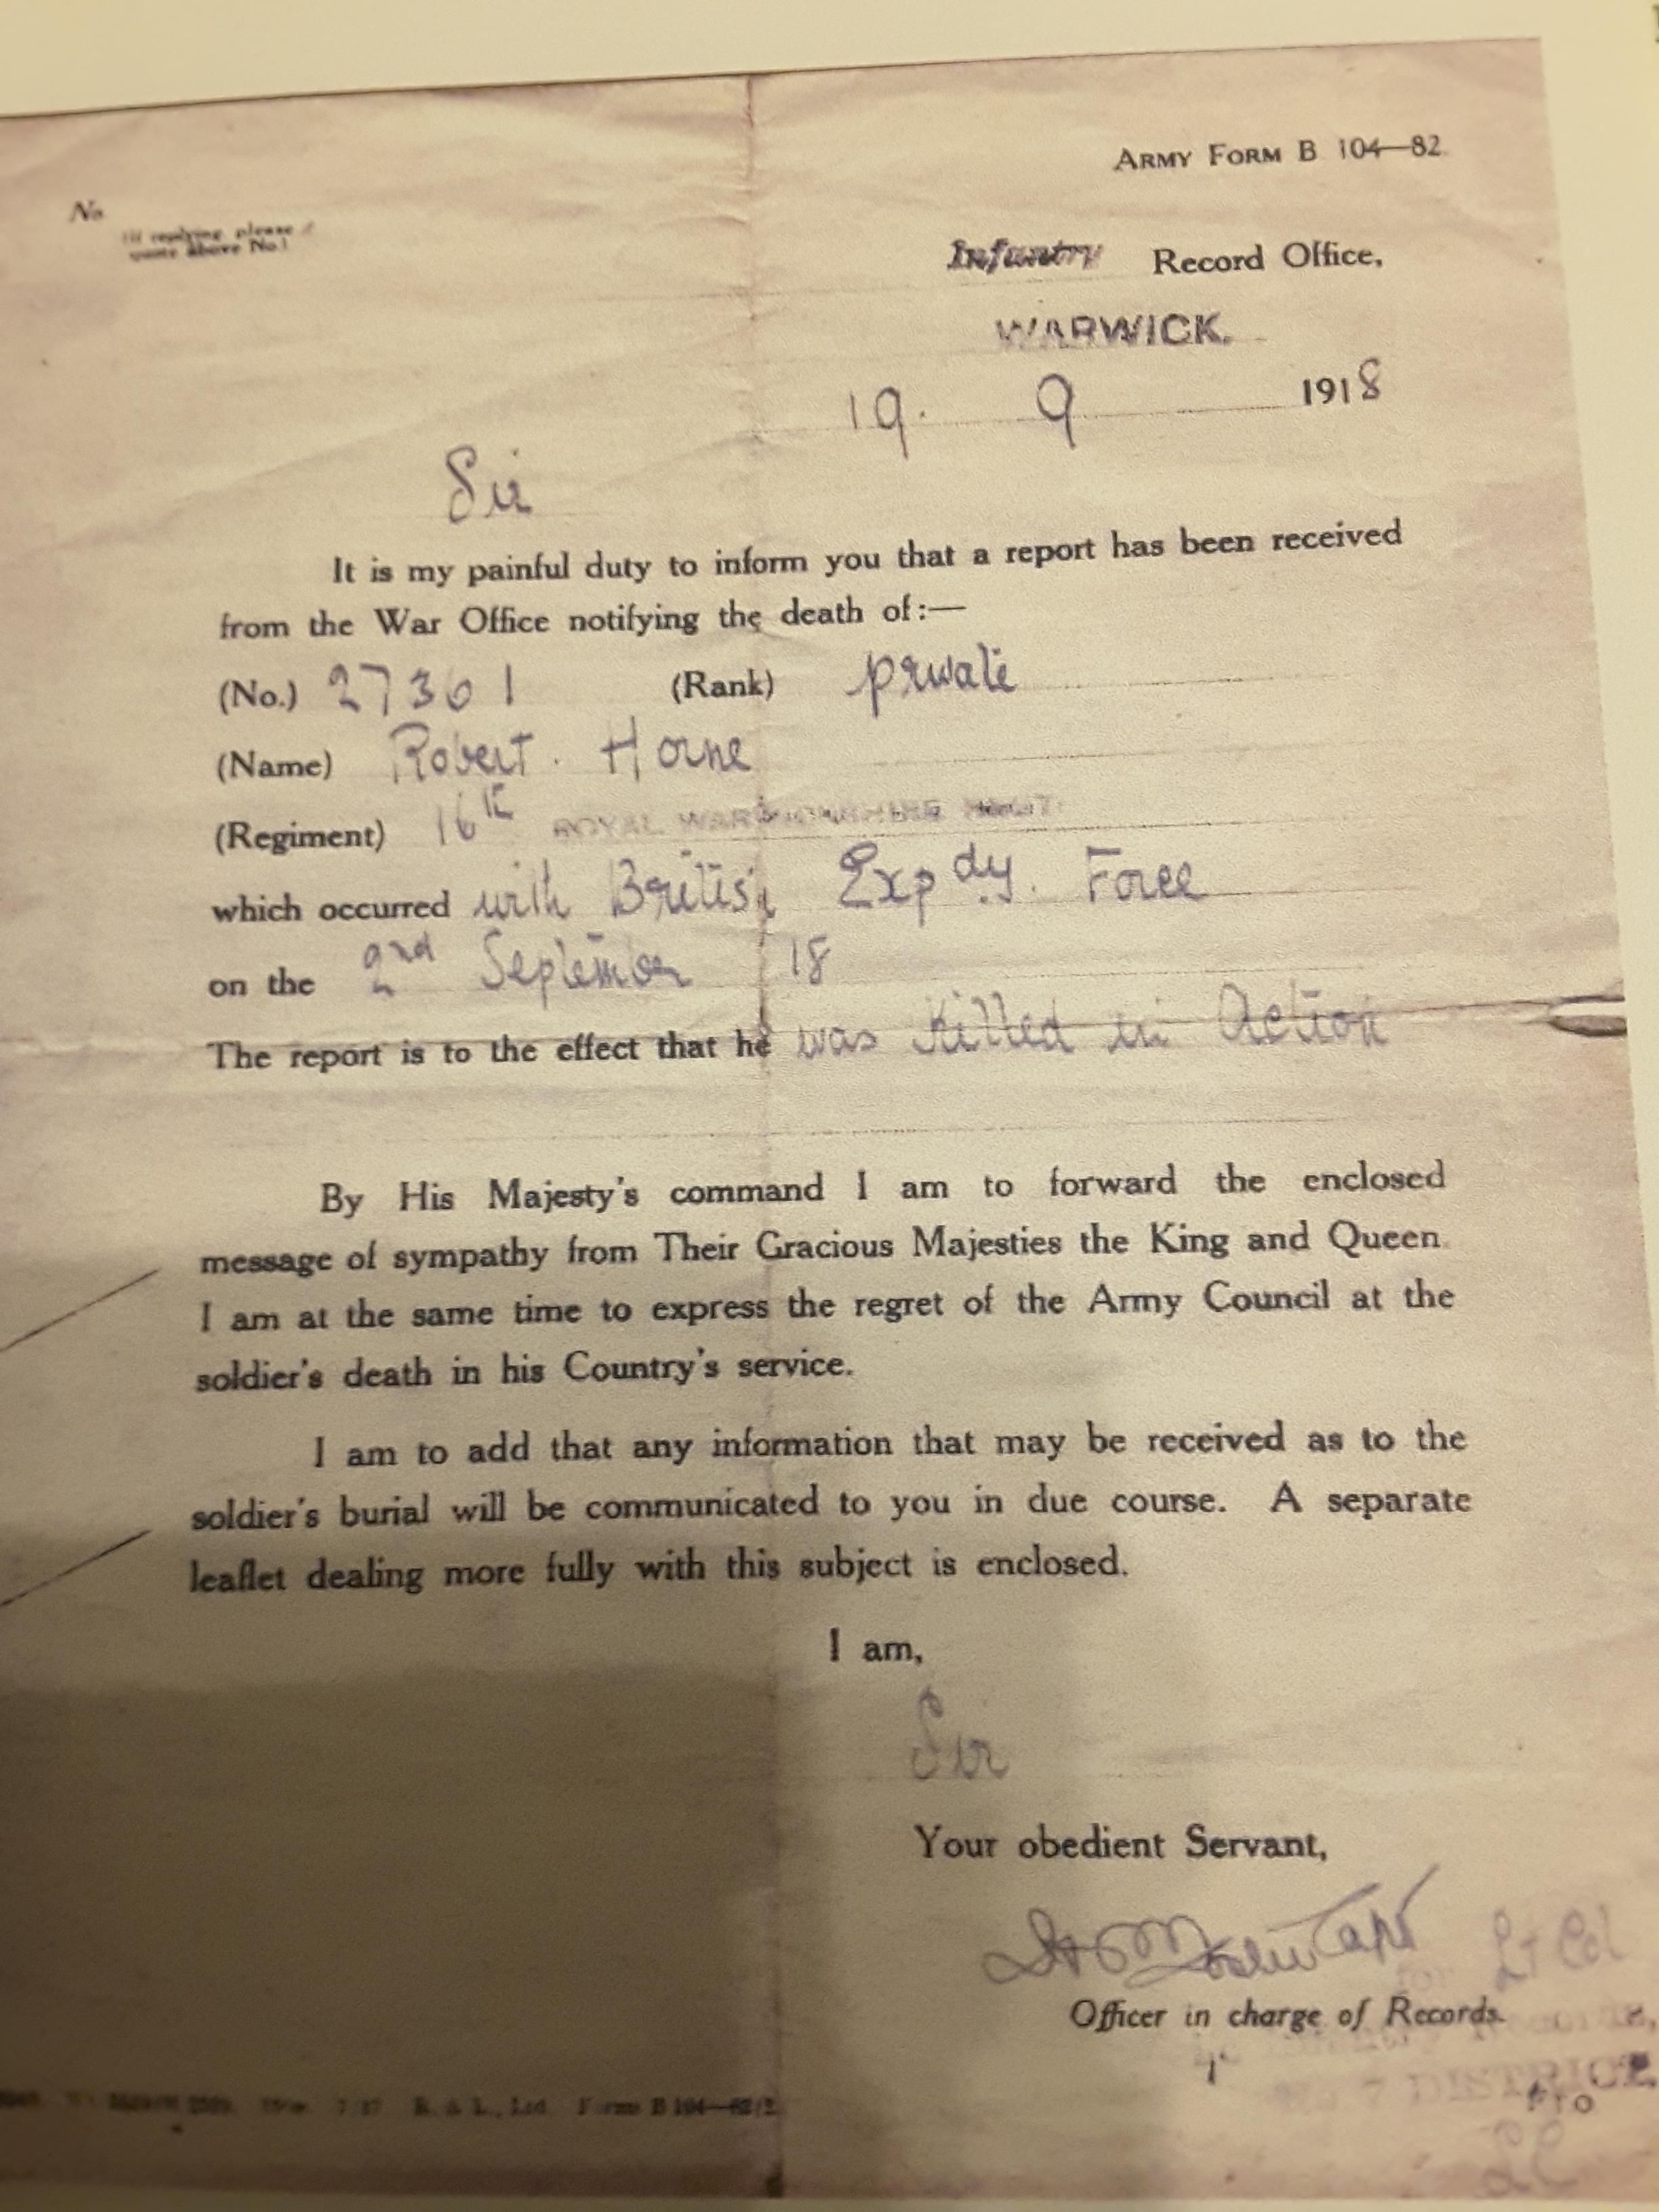 ARMY FORM B 104—82.
No
(If replying, please
quote above No.)
Infantry Record Office,
WARWICK.
19. 9 1918
Sir
It is my painful duty to inform you that a report has been received
from the War Office notifying the death of:—
(No.) 27361 (Rank) private
(Name) Robert. Horne
(Regiment) 16th ROYAL WARWICKSHIRE REGT.
which occurred with British Expdy. Force
on the 2nd September 18
The report is to the effect that he was Killed in Action
By His Majesty's command I am to forward the enclosed
message of sympathy from Their Gracious Majesties the King and Queen.
I am at the same time to express the regret of the Army Council at the
soldier's death in his Country's service.
I am to add that any information that may be received as to the
soldier's burial will be communicated to you in due course. A separate
leaflet dealing more fully with this subject is enclosed.
I am,
Sir
Your obedient Servant,
for Lt Col
Officer in charge of Records.
No 7 DISTRICT.
B. & L., Ltd. Forms B 104—82/2.